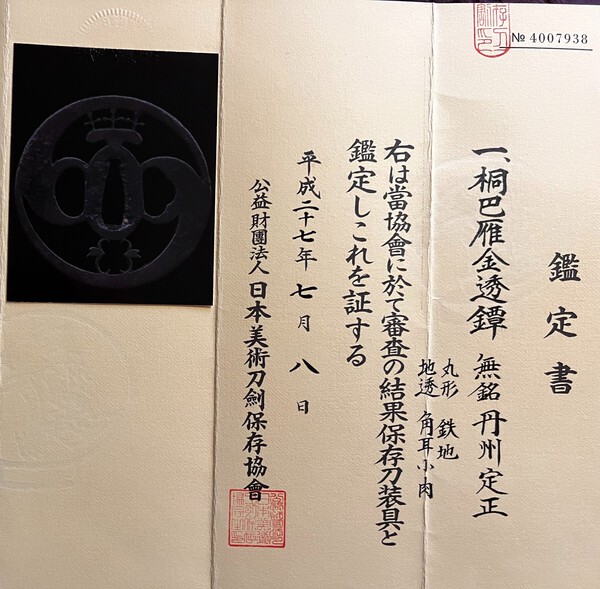 № 4007938
鑑定書
一、桐巴雁金透鐔 無銘 丹州定正
丸形 鉄地
地透 角耳小肉
右は當協會に於て審査の結果保存刀装具と
鑑定しこれを証する
平成二十七年七月八日
公益財團法人 日本美術刀劍保存協會